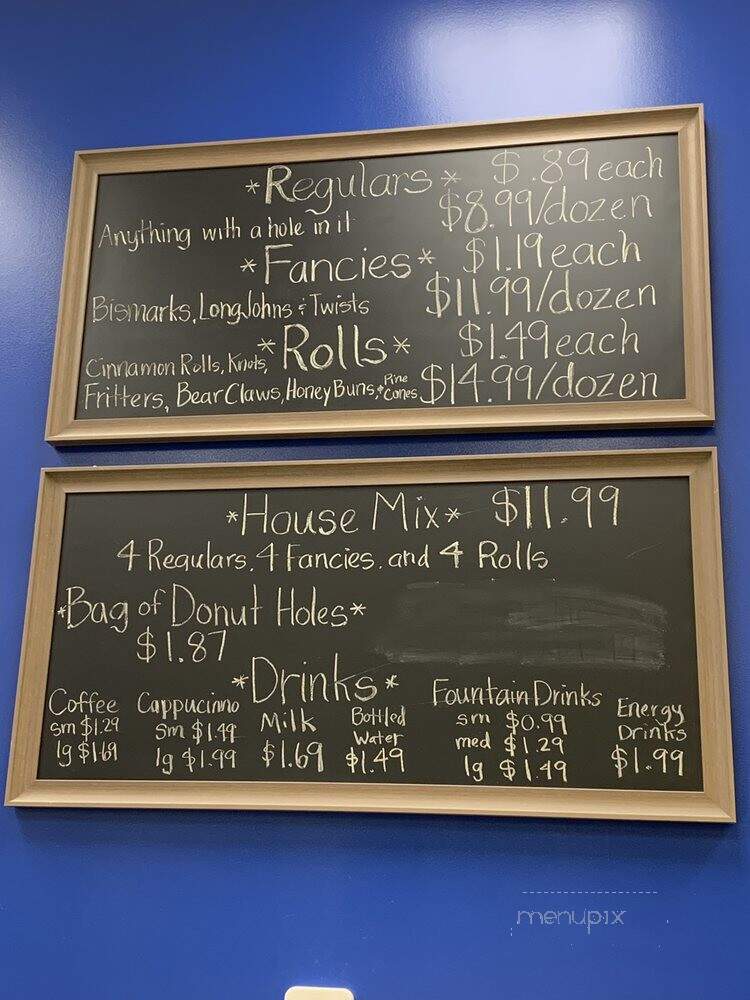 *Regulars* $.89 each
Anything with a hole in it $8.99/dozen
*Fancies* $1.19 each
Bismarks, Long Johns & Twists $11.99/dozen
*Rolls* $1.49 each
Cinnamon Rolls, Knots,
Fritters, Bear Claws, Honey Buns, & Pine Cones $14.99/dozen
*House Mix* $11.99
4 Regulars, 4 Fancies, and 4 Rolls
*Bag of Donut Holes*
$1.87
*Drinks*
Coffee
sm $1.29
lg $1.69
Cappucinno
sm $1.49
lg $1.99
Milk
$1.69
Bottled
Water
$1.49
Fountain Drinks
sm $0.99
med $1.29
lg $1.49
Energy
Drinks
$1.99
menupix